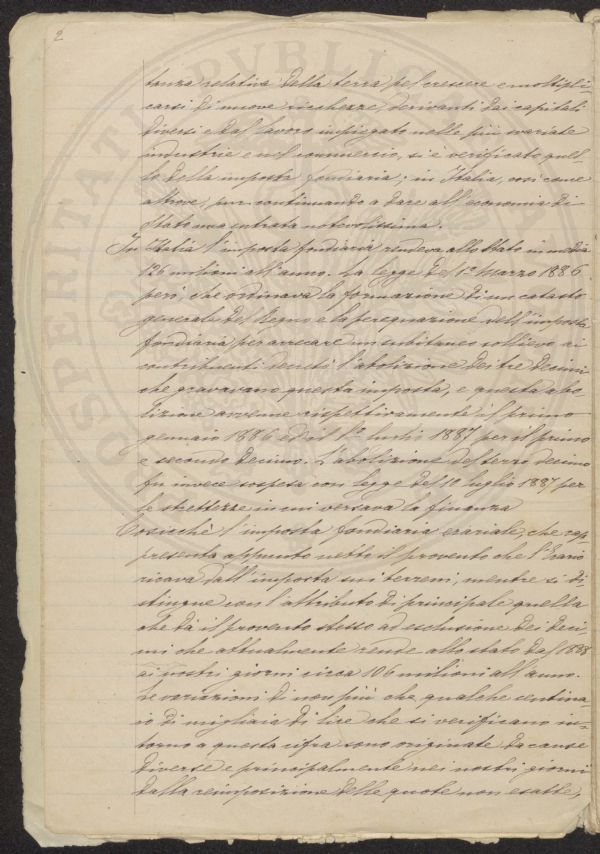 2
tanza relativa della terra pel crescere e moltipli-
carsi di nuove ricchezze, derivanti dai capitali
diversi e dal lavoro impiegato nelle più svariate
industrie e nel commercio, si è verificato quel-
lo della imposta fondiaria; in Italia, così come
altrove, pur continuando a dare all'economia di
Stato una entrata notevolissima.
In Italia l'imposta fondiaria rendeva allo Stato in media
126 milioni all'anno. La legge del 1º Marzo 1886
però, che ordinava la formazione di un catasto
generale del Regno e la perequazione dell'imposta
fondiaria per arrecare un subitaneo sollievo ai
contribuenti decretò l'abolizione dei tre decimi
che gravavano questa imposta, e questa abo-
lizione avvenne rispettivamente il primo
gennaio 1886 ed il 1º luglio 1887 per il primo
e secondo decimo. L'abolizione del terzo decimo
fu invece sospesa con legge del 10 luglio 1887 per
le strettezze in cui versava la finanza
Cosicchè l'imposta fondiaria erariale, che rap-
presenta appunto netto il provento che l'Erario
ricava dall'imposta sui terreni, mentre si di-
stingue con l'attributo di principale quella
che dà il provento stesso ad esclusione dei deci-
mi che attualmente rende allo stato dal 1888
ai nostri giorni circa 106 milioni all'anno.
Le variazioni di non più che qualche centina-
io di migliaia di lire che si verificano in-
torno a questa cifra sono originate da cause
diverse e principalmente nei nostri giorni
dalla reimposizione delle quote non esatte,